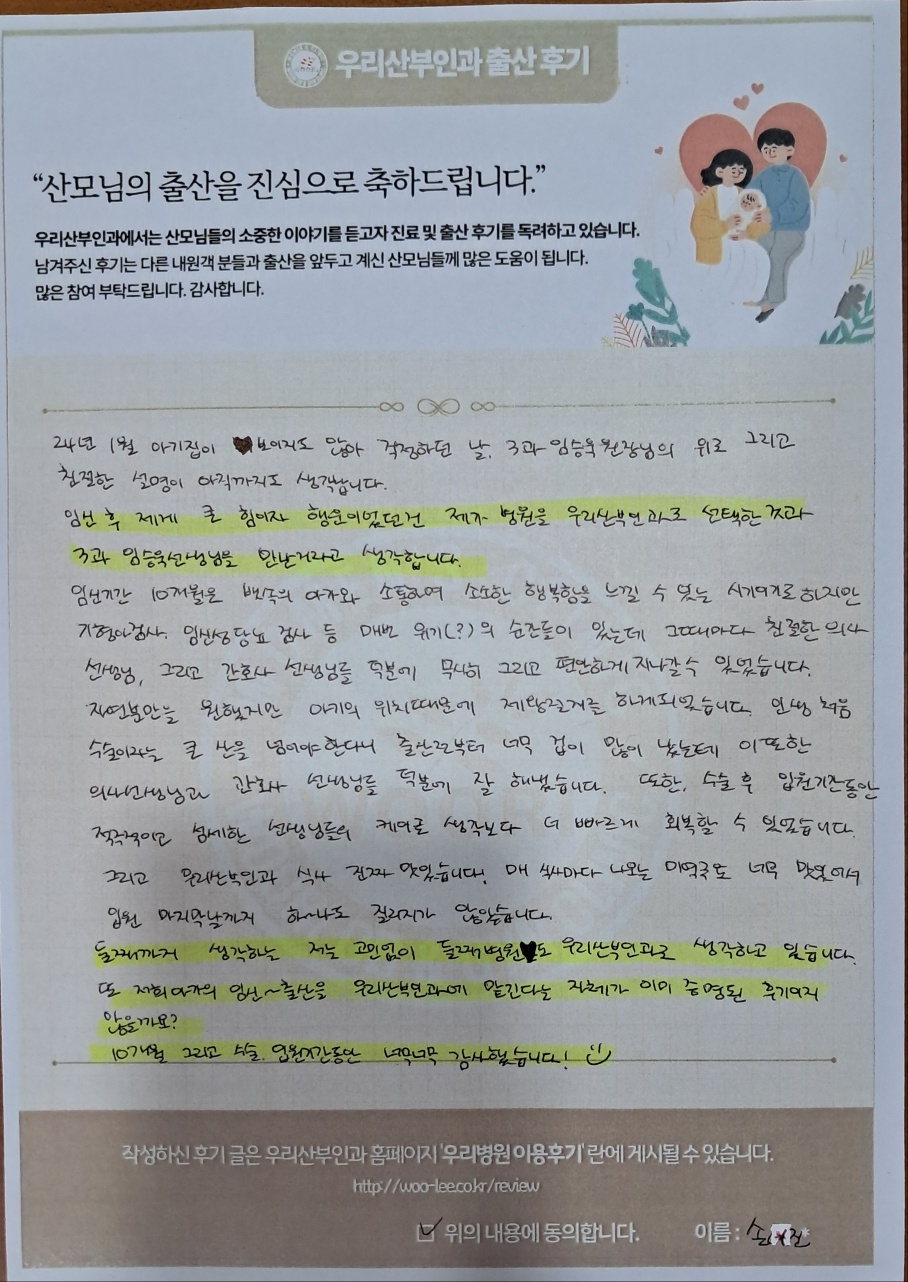 우리산부인과 출산 후기
“산모님의 출산을 진심으로 축하드립니다.”
우리산부인과에서는 산모님들의 소중한 이야기를 듣고자 진료 및 출산 후기를 독려하고 있습니다.
남겨주신 후기는 다른 내원객 분들과 출산을 앞두고 계신 산모님들께 많은 도움이 됩니다.
많은 참여 부탁드립니다. 감사합니다.
24년 1월 아기집이 보이지도 않아 걱정하던 날, 3과 임승욱원장님의 위로 그리고
친절한 설명이 아직까지도 생각납니다.
임신 후 제게 큰 힘이자 행운이었던건 제가 병원을 우리산부인과로 선택한 것과
3과 임승욱선생님을 만난거라고 생각합니다.
임신기간 10개월은 뱃속의 아가와 소통하며 소소한 행복함을 느낄 수 있는 시기이기도 하지만
기형아검사, 임신성당뇨 검사 등 매번 위기(?)의 순간들이 있는데 그때마다 친절한 의사
선생님, 그리고 간호사 선생님들 덕분에 무사히 그리고 편안하게 지나갈 수 있었습니다.
자연분만을 원했지만 아기의 위치때문에 제왕절개를 하게되었습니다. 인생 처음
수술이라는 큰 산을 넘어야 한다니 출산전부터 너무 겁이 많이 났는데 이또한
의사선생님과 간호사 선생님들 덕분에 잘 해냈습니다. 또한, 수술 후 입원기간동안
적극적이고 섬세한 선생님들의 케어로 생각보다 더 빠르게 회복할 수 있었습니다.
그리고 우리산부인과 식사 진짜 맛있습니다! 매 식사마다 나오는 미역국도 너무 맛있어서
입원 마지막날까지 하~나도 질리지가 않았습니다.
둘째까지 생각하는 저는 고민없이 둘째병원도 우리산부인과로 생각하고 있습니다.
또 저희아가의 임신~출산을 우리산부인과에 맡긴다는 자체가 이미 증명된 후기이지
않을까요?
10개월 그리고 수술, 입원기간동안 너무너무 감사했습니다!
작성하신 후기 글은 우리산부인과 홈페이지 '우리병원 이용후기' 란에 게시될 수 있습니다.
http://woo-lee.co.kr/review
위의 내용에 동의합니다. 이름 : 손